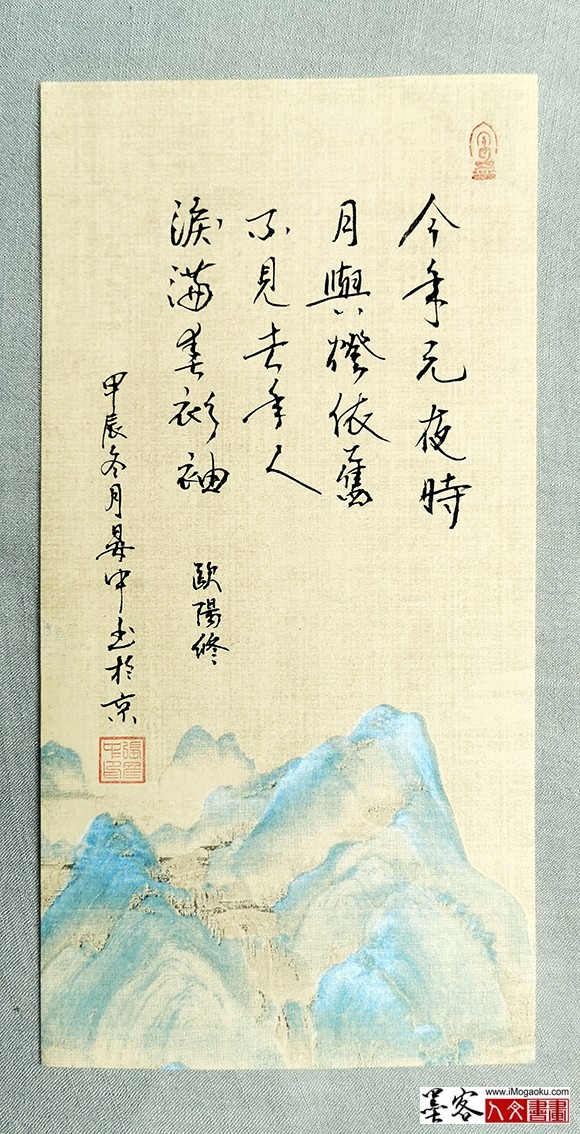 今年元夜時
月與燈依舊
不見去年人
淚滿春衫袖
歐陽修
甲辰冬月昪中书於京
墨客
www.iMogaoku.com
人文書畫